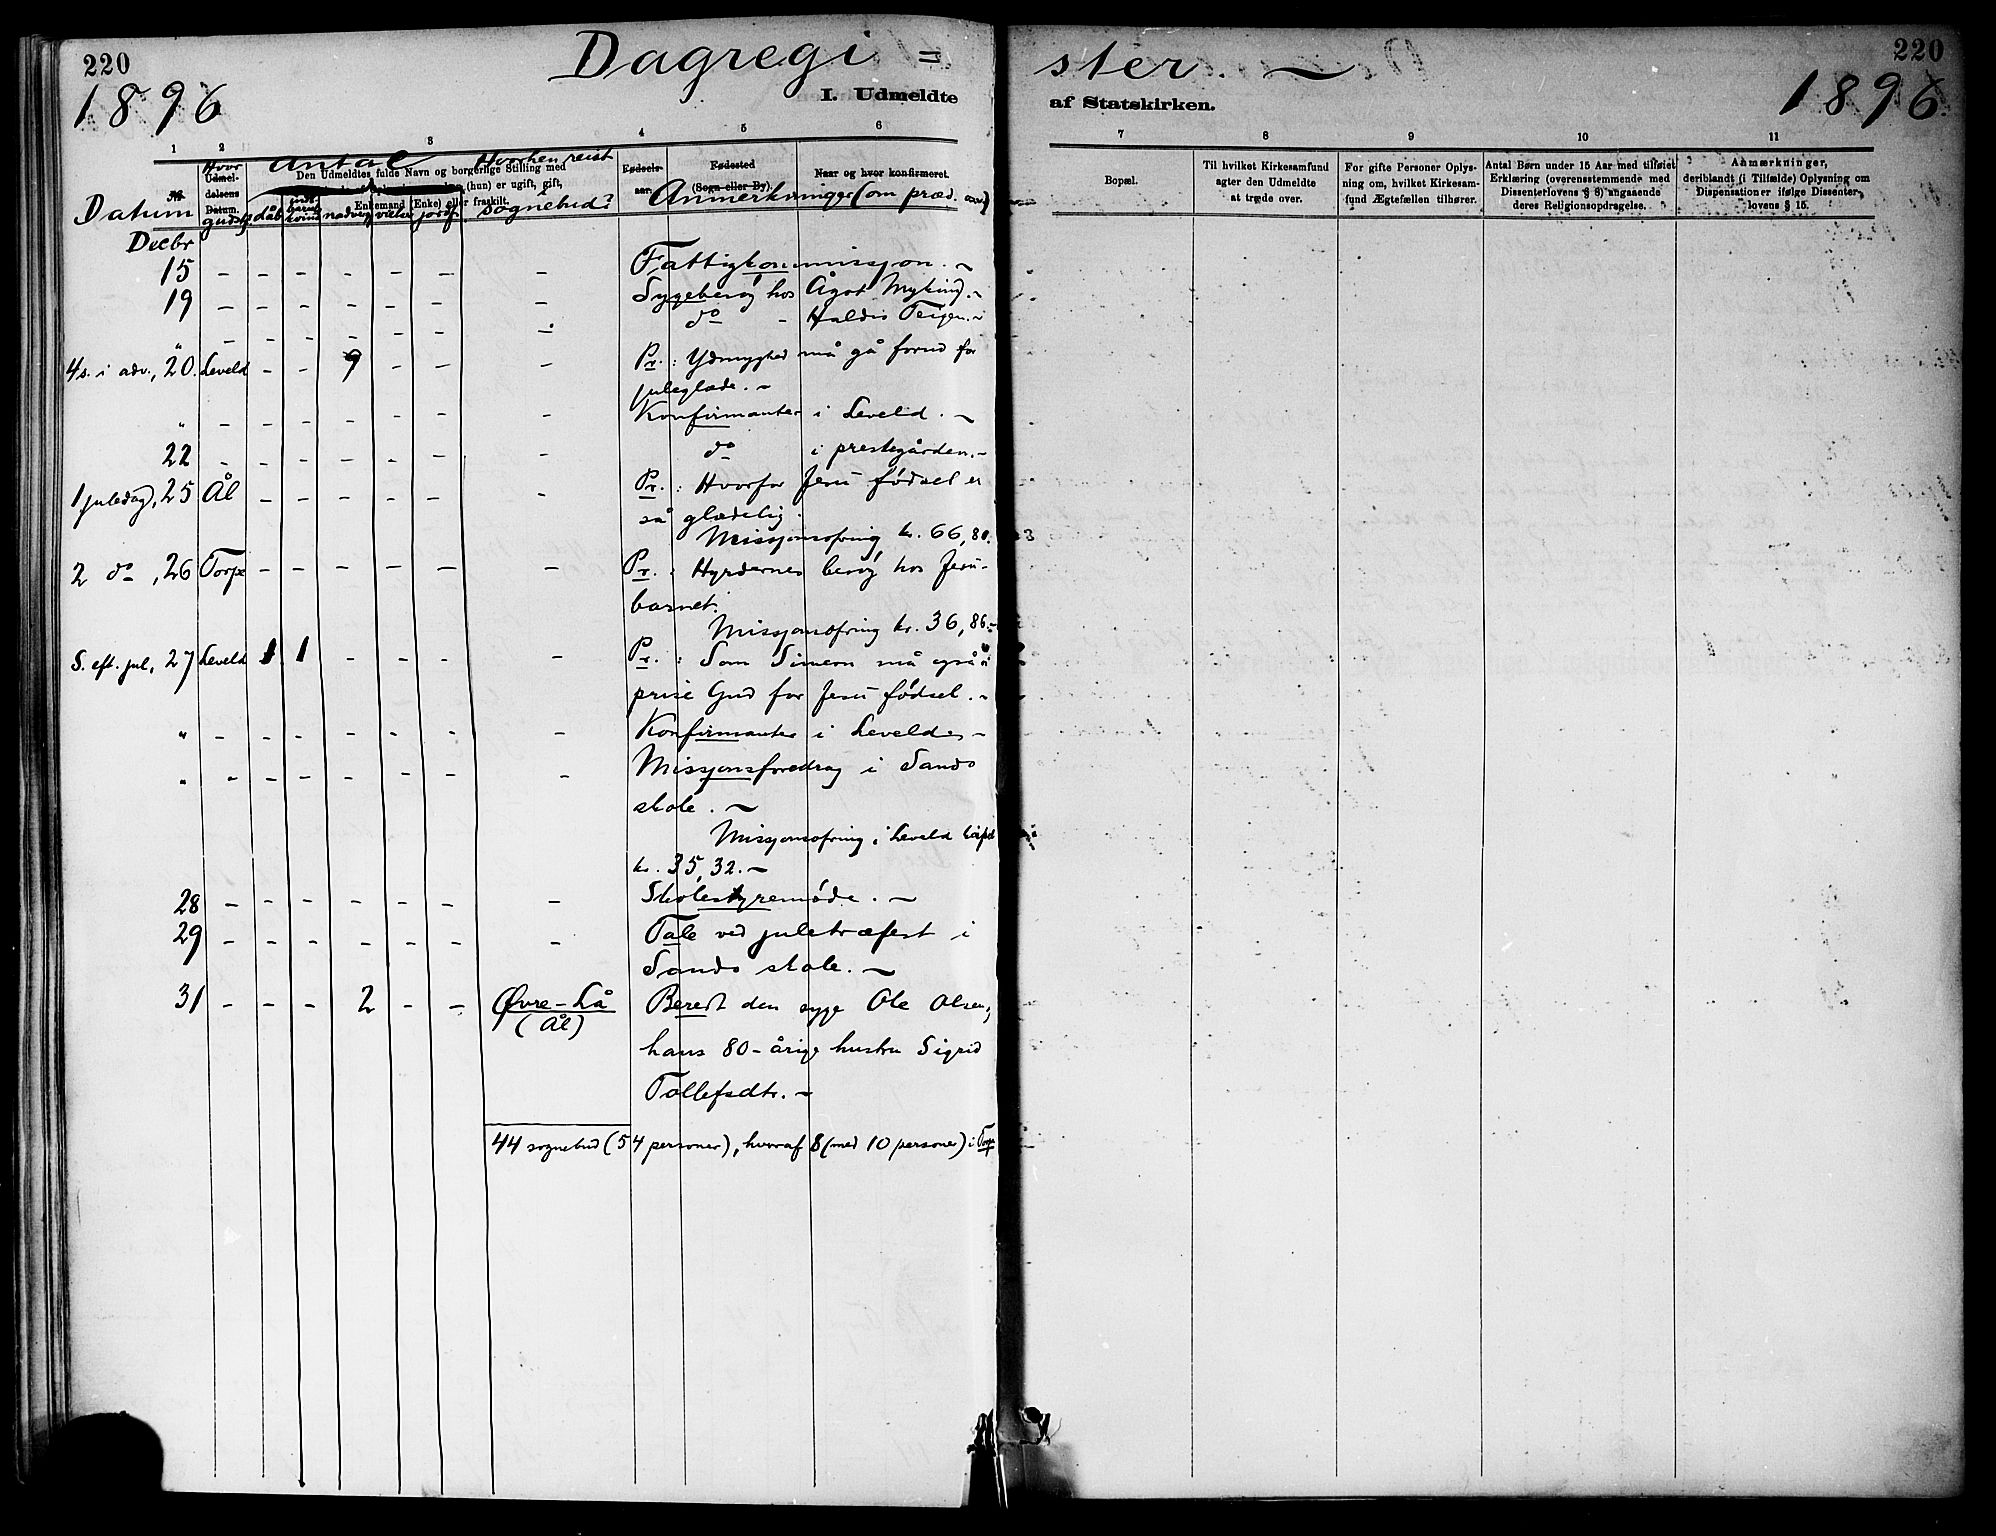 220
Dagregi =
ster. ~
220
1896
I. Udmeldte
af Statskirken.
1896.
1 2 3 4 5 6
7 8 9 10 11
Datum
Hvor
Udmeldelsens Datum.
gudstj.
Antal
Den Udmeldtes fulde Navn og borgerlige Stilling med
(hun) er ugift, gift,
Enkemand (Enke) eller fraskilt.
dåb
nadverg
vielser
jordf
Hvorhen reist
i
sognebud?
Fødsels-
aar.
Fødested
(Sogn eller By).
Naar og hvor konfirmeret.
Anmerkninger (om præd. osv)
Bopæl.
Til hvilket Kirkesamfund
agter den Udmeldte
at træde over.
For gifte Personer Oplys-
ning om, hvilket Kirkesam-
fund Ægtefællen tilhører.
Antal Børn under 15 Aar med tilføiet
Erklæring (overensstemmende med
Dissenterlovens § 8) angaaende
deres Religionsopdragelse.
Anmærkninger,
deriblandt (i Tilfælde) Oplysning om
Dispensationer ifølge Dissenter-
lovens § 15.
Decbr
15 - - - - - - - Fattigkommissjon. ~
19 - - - - - - - Sygebesøg hos Ågot Myking. ~
" - - - - - - - do - Haldis Teigen. ~
4s. i adv., 20. Leveld - - 9 - - - Pr.: Ydmyghed må gå forud for
juleglæde. ~
" - - - - - - - Konfirmanter i Leveld. ~
22 - - - - - - - do i prestegården. ~
1 juledag, 25 Ål - - - - - - Pr.: Hvorfor Jesu fødsel er
så glædelig.
Missjonsofring kr. 66,80.
2 do, 26 Torpe - - - - - - Pr.: Hyrdernes besøg hos Jesu-
barnet.
Missjonsofring kr. 36,86 ~
S. eft. jul, 27 Leveld 1 1 - - - - Pr.: Som Simeon må også vi
prise Gud for Jesu fødsel. ~
" - - - - - - - Konfirmanter i Leveld ~
" - - - - - - - Missjonsforedrag i Sando
skole. ~
Missjonsofring i Leveld kapel
kr. 35,32. ~
28 - - - - - - - Skolestyremøde. ~
29 - - - - - - - Tale ved juletræfest i
Sando skole. ~
31 - - - 2 - - Øvre-Lå Beredt den syge Ole Olsen,
(Ål)
hans 80-årige hustru Sigrid
Tollefsdtr. ~
44 sognebud (54 personer), hvoraf 8 (med 10 personer) i Torpe